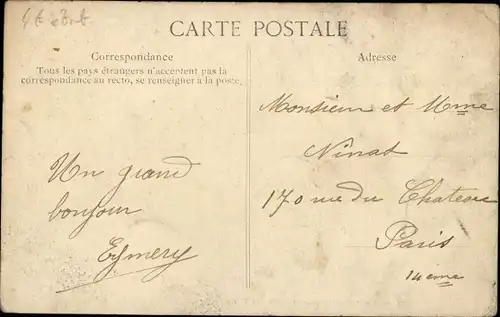 CARTE POSTALE
Correspondance
Tous les pays étrangers n'acceptent pas la
correspondance au recto, se renseigner à la poste.
Adresse
Un grand
bonjour
Eymery
Monsieur et Mme
Ninat
170 rue du Chateau
Paris
14eme